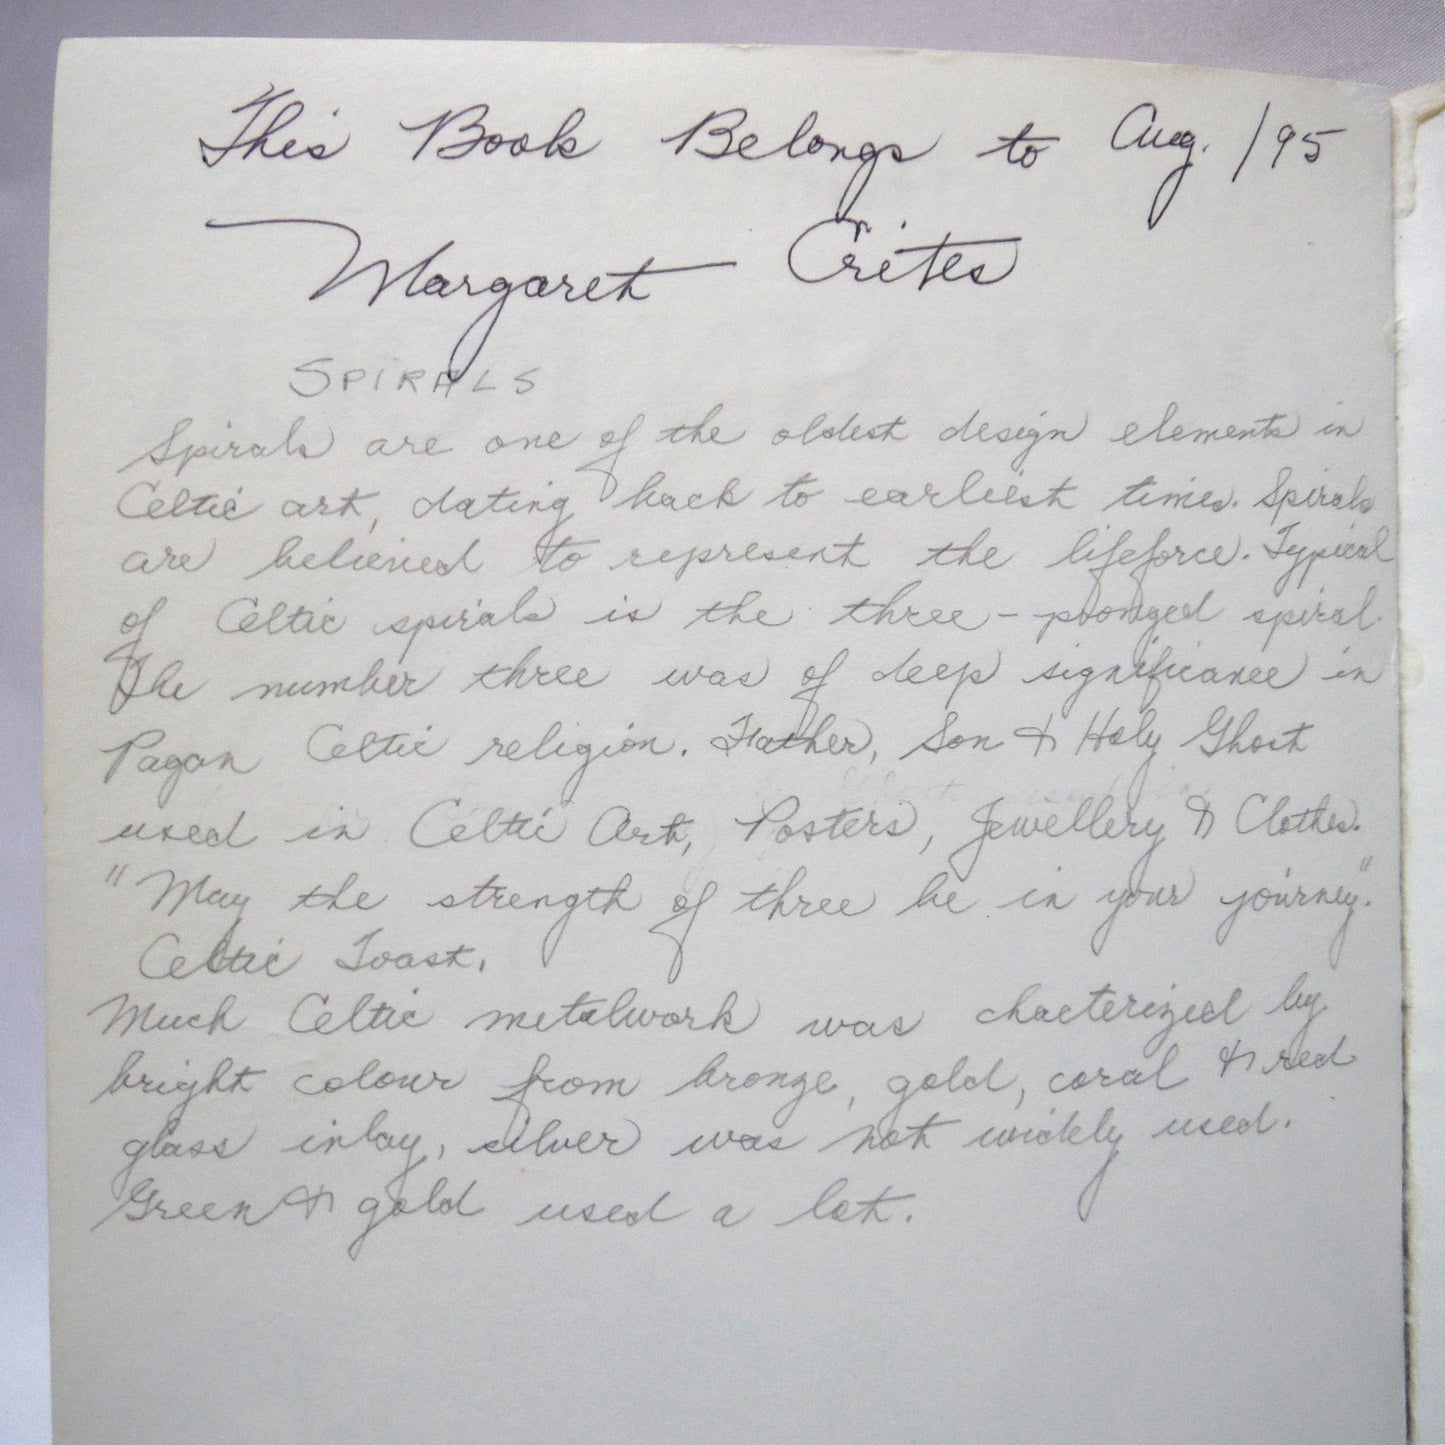 This Book Belongs to Aug. /95
Margaret Crites
SPIRALS
Spirals are one of the oldest design elements in
Celtic art, dating back to earliest times. Spirals
are believed to represent the lifeforce. Typical
of Celtic spirals is the three-pronged spiral.
The number three was of deep significance in
Pagan Celtic religion. Father, Son & Holy Ghost
used in Celtic Art, Posters, Jewellery & Clothes.
"May the strength of three be in your journey."
Celtic Toast.
Much Celtic metalwork was chacterized by
bright colour from bronze, gold, coral & red
glass inlay, silver was not widely used.
Green & gold used a lot.